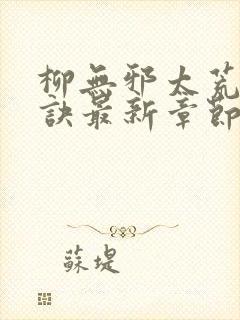 柳無邪太荒
訣最新章節
蘇堤